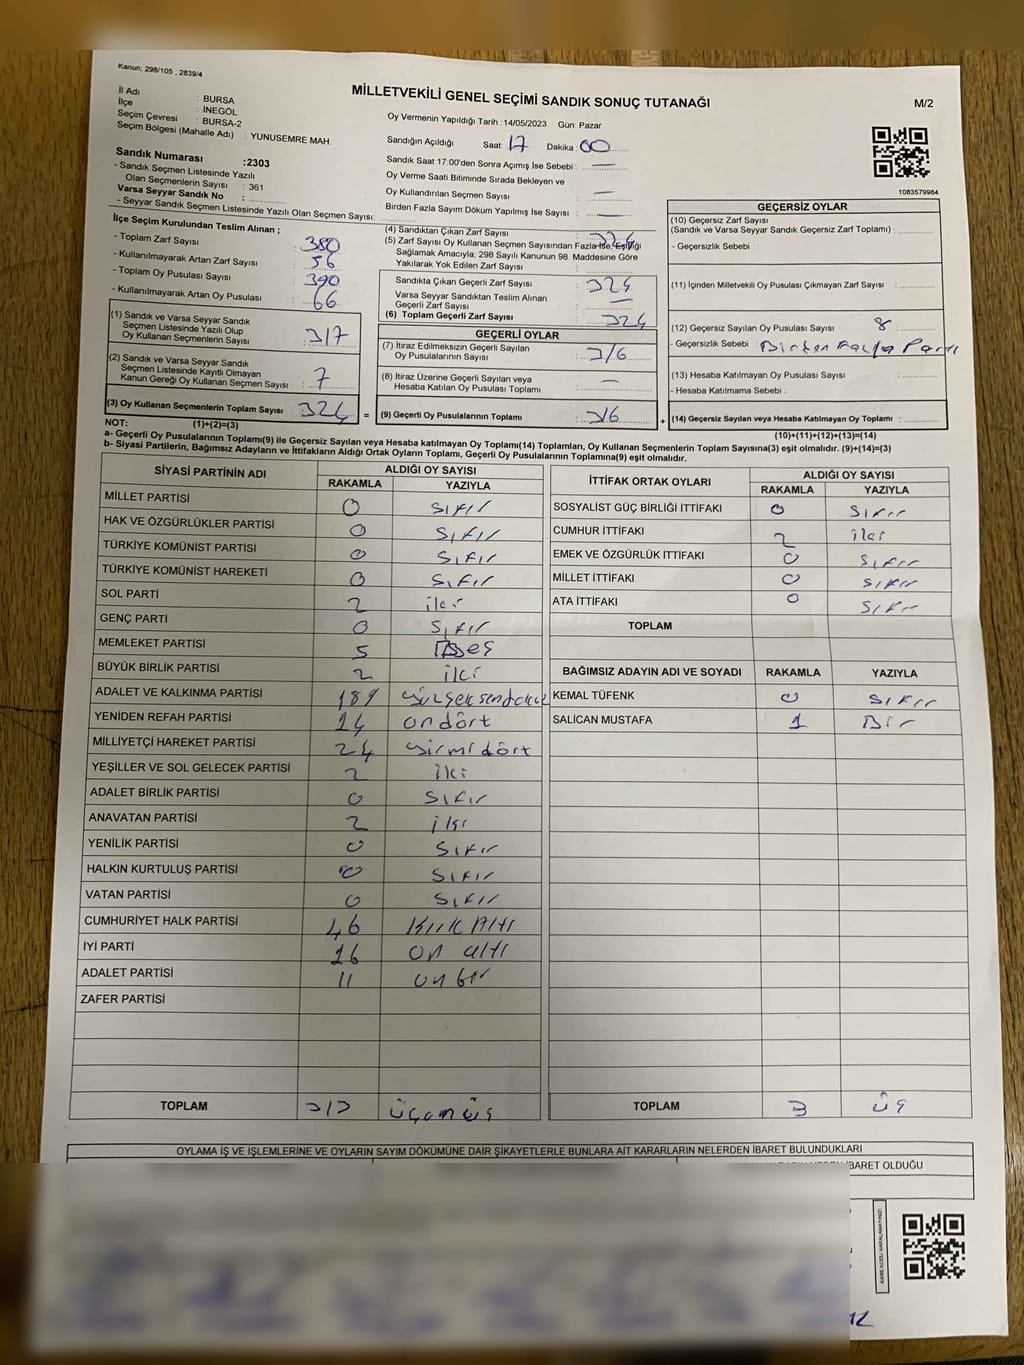 Kanun; 298/105 , 2839/4
MİLLETVEKİLİ GENEL SEÇİMİ SANDIK SONUÇ TUTANAĞI
M/2
İl Adı : BURSA
İlçe : İNEGÖL
Seçim Çevresi : BURSA-2
Seçim Bölgesi (Mahalle Adı) : YUNUSEMRE MAH.
Oy Vermenin Yapıldığı Tarih : 14/05/2023 Gün: Pazar
Sandığın Açıldığı Saat: 17 Dakika: 00
Sandık Saat 17:00'den Sonra Açımış İse Sebebi : —
Oy Verme Saati Bitiminde Sırada Bekleyen ve
Oy Kullandırılan Seçmen Sayısı : —
Birden Fazla Sayım Döküm Yapılmış İse Sayısı : —
1083579984
Sandık Numarası :2303
- Sandık Seçmen Listesinde Yazılı
Olan Seçmenlerin Sayısı : 361
Varsa Seyyar Sandık No :
- Seyyar Sandık Seçmen Listesinde Yazılı Olan Seçmen Sayısı:
İlçe Seçim Kurulundan Teslim Alınan ;
- Toplam Zarf Sayısı : 380
- Kullanılmayarak Artan Zarf Sayısı : 56
- Toplam Oy Pusulası Sayısı : 390
- Kullanılmayarak Artan Oy Pusulası : 66
(1) Sandık ve Varsa Seyyar Sandık
Seçmen Listesinde Yazılı Olup
Oy Kullanan Seçmenlerin Sayısı : 317
(2) Sandık ve Varsa Seyyar Sandık
Seçmen Listesinde Kayıtlı Olmayan
Kanun Gereği Oy Kullanan Seçmen Sayısı : 7
(3) Oy Kullanan Seçmenlerin Toplam Sayısı : 324
(1)+(2)=(3)
(4) Sandıktan Çıkan Zarf Sayısı : 324
(5) Zarf Sayısı Oy Kullanan Seçmen Sayısından Fazla İse, Eşitliği
Sağlamak Amacıyla, 298 Sayılı Kanunun 98. Maddesine Göre
Yakılarak Yok Edilen Zarf Sayısı :
Sandıkta Çıkan Geçerli Zarf Sayısı : 324
Varsa Seyyar Sandıktan Teslim Alınan
Geçerli Zarf Sayısı : —
(6) Toplam Geçerli Zarf Sayısı : 324
GEÇERLİ OYLAR
(7) İtiraz Edilmeksizin Geçerli Sayılan
Oy Pusulalarının Sayısı : 316
(8) İtiraz Üzerine Geçerli Sayılan veya
Hesaba Katılan Oy Pusulası Toplamı : —
= (9) Geçerli Oy Pusulalarının Toplamı : 316
GEÇERSİZ OYLAR
(10) Geçersiz Zarf Sayısı
(Sandık ve Varsa Seyyar Sandık Geçersiz Zarf Toplamı) :
- Geçersizlik Sebebi :
(11) İçinden Milletvekili Oy Pusulası Çıkmayan Zarf Sayısı :
(12) Geçersiz Sayılan Oy Pusulası Sayısı : 8
- Geçersizlik Sebebi : Birden Fazla Parti
(13) Hesaba Katılmayan Oy Pusulası Sayısı :
- Hesaba Katılmama Sebebi :
+ (14) Geçersiz Sayılan veya Hesaba Katılmayan Oy Toplamı :
(10)+(11)+(12)+(13)=(14)
NOT:
a- Geçerli Oy Pusulalarının Toplamı(9) ile Geçersiz Sayılan veya Hesaba katılmayan Oy Toplam(14) Toplamları, Oy Kullanan Seçmenlerin Toplam Sayısına(3) eşit olmalıdır. (9)+(14)=(3)
b- Siyasi Partilerin, Bağımsız Adayların ve İttifakların Aldığı Ortak Oyların Toplamı, Geçerli Oy Pusulalarının Toplamına(9) eşit olmalıdır.
SİYASİ PARTİNİN ADI ALDIĞI OY SAYISI
RAKAMLA YAZIYLA
MİLLET PARTİSİ 0 Sıfır
HAK VE ÖZGÜRLÜKLER PARTİSİ 0 Sıfır
TÜRKİYE KOMÜNİST PARTİSİ 0 Sıfır
TÜRKİYE KOMÜNİST HAREKETİ 0 Sıfır
SOL PARTİ 2 iki
GENÇ PARTİ 0 Sıfır
MEMLEKET PARTİSİ 5 Beş
BÜYÜK BİRLİK PARTİSİ 2 iki
ADALET VE KALKINMA PARTİSİ 189 yüzseksendokuz
YENİDEN REFAH PARTİSİ 14 ondört
MİLLİYETÇİ HAREKET PARTİSİ 24 yirmidört
YEŞİLLER VE SOL GELECEK PARTİSİ 2 iki
ADALET BİRLİK PARTİSİ 0 Sıfır
ANAVATAN PARTİSİ 2 iki
YENİLİK PARTİSİ 0 Sıfır
HALKIN KURTULUŞ PARTİSİ 0 Sıfır
VATAN PARTİSİ 0 Sıfır
CUMHURİYET HALK PARTİSİ 46 Kırk Altı
İYİ PARTİ 16 on altı
ADALET PARTİSİ 11 on bir
ZAFER PARTİSİ
TOPLAM 313 üçonüç
İTTİFAK ORTAK OYLARI ALDIĞI OY SAYISI
RAKAMLA YAZIYLA
SOSYALİST GÜÇ BİRLİĞİ İTTİFAKI 0 Sıfır
CUMHUR İTTİFAKI 2 iki
EMEK VE ÖZGÜRLÜK İTTİFAKI 0 Sıfır
MİLLET İTTİFAKI 0 Sıfır
ATA İTTİFAKI 0 Sıfır
TOPLAM
BAĞIMSIZ ADAYIN ADI VE SOYADI RAKAMLA YAZIYLA
KEMAL TÜFENK 0 Sıfır
SALİCAN MUSTAFA 1 Bir
TOPLAM 3 üç
OYLAMA İŞ VE İŞLEMLERİNE VE OYLARIN SAYIM DÖKÜMÜNE DAİR ŞİKAYETLERLE BUNLARA AİT KARARLARIN NELERDEN İBARET BULUNDUKLARI
İBARET OLDUĞU